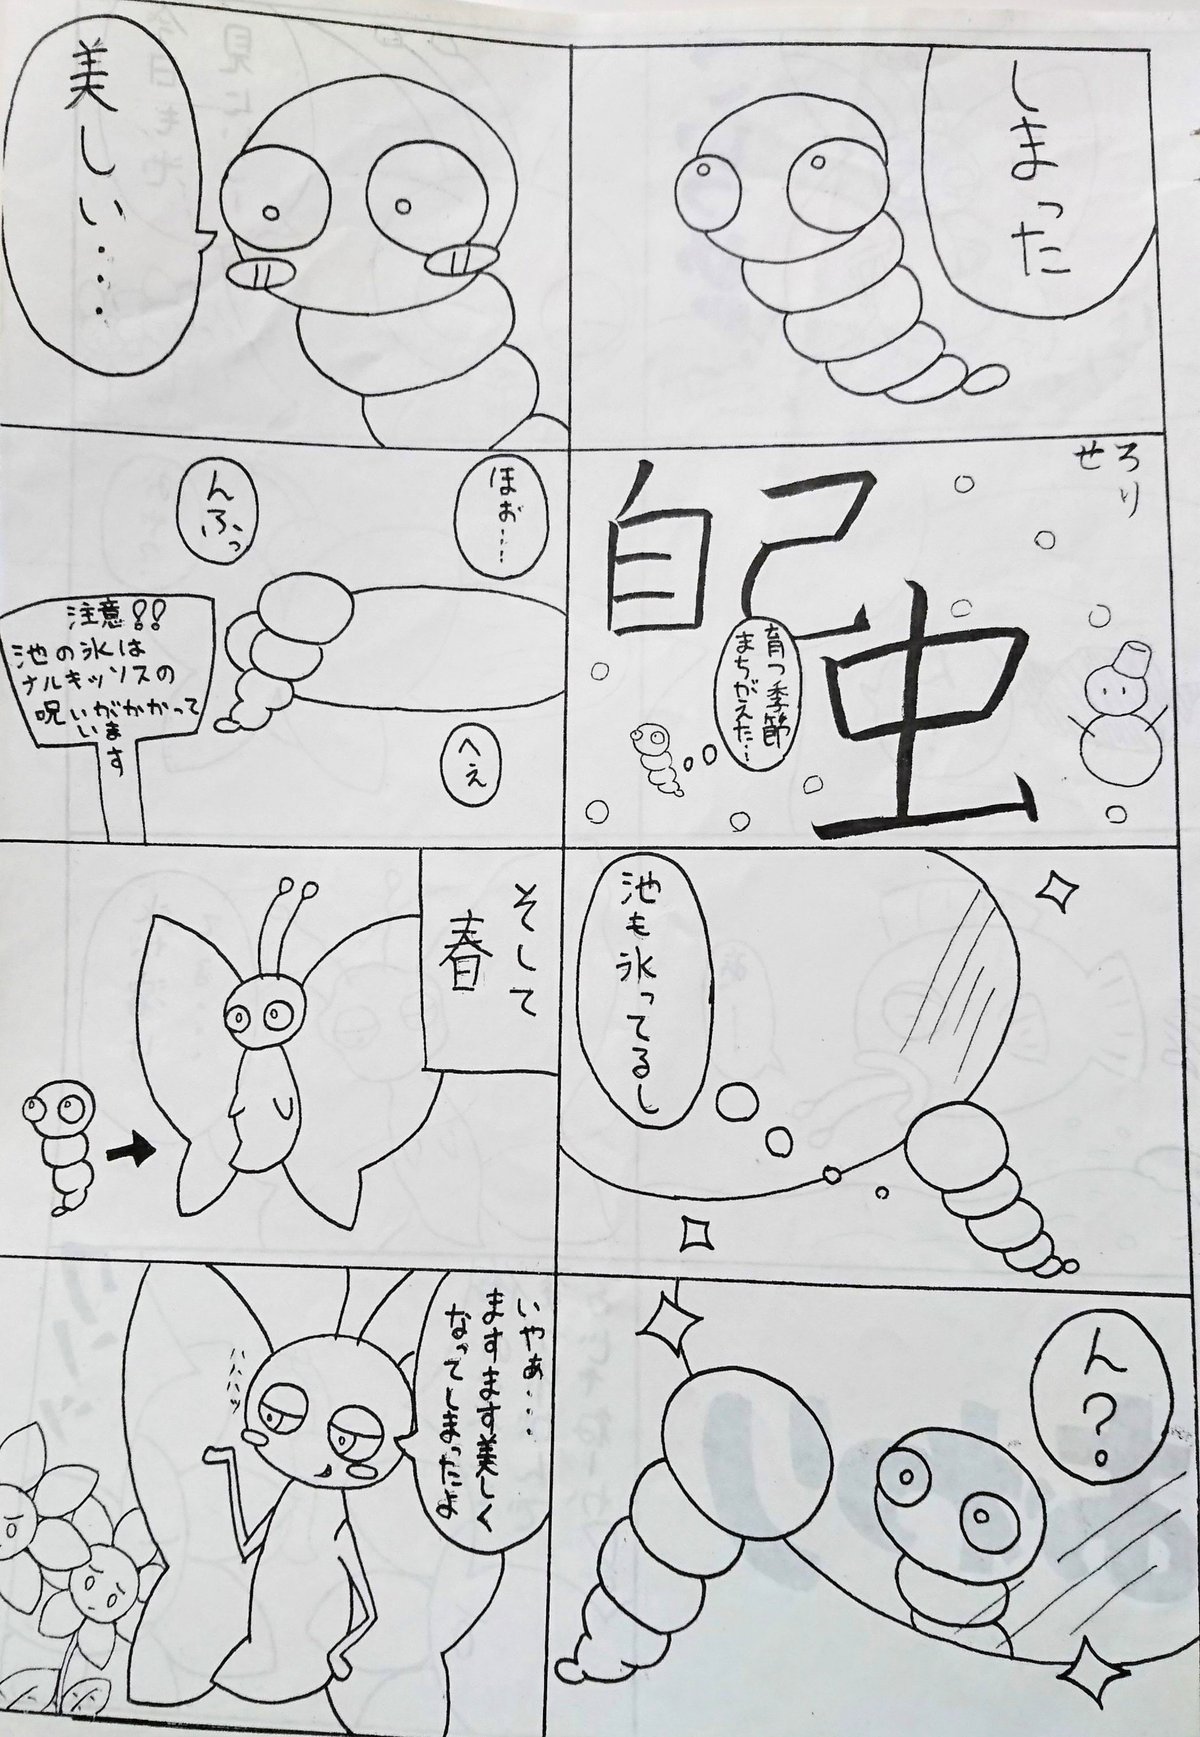 しまった
自己虫
せろり
育つ季節
まちがえた…
池も氷ってるし
ん?
美しい・・・
ほぉ……
んふっ
へぇ
注意!!
池の氷は
ナルキッソスの
呪いがかかって
います
そして
春
いやぁ・・・
ますます美しく
なってしまったよ